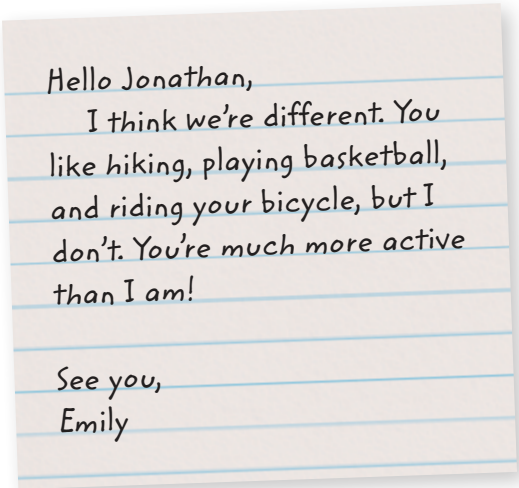 Hello Jonathan,
I think we're different. You
like hiking, playing basketball,
and riding your bicycle, but I
don't. You're much more active
than I am!
See you,
Emily